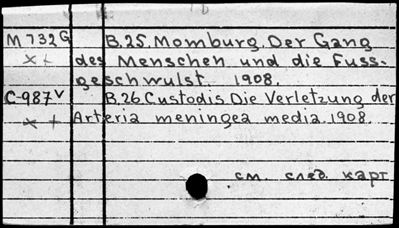 M 732 G B.25. Momburg. Der Gang
x + des Menschen und die Fuss-
geschwulst. 1908.
C-987 V B.26. Custodis. Die Verletzung der
x + Arteria meningea media. 1908.
см. след. карт